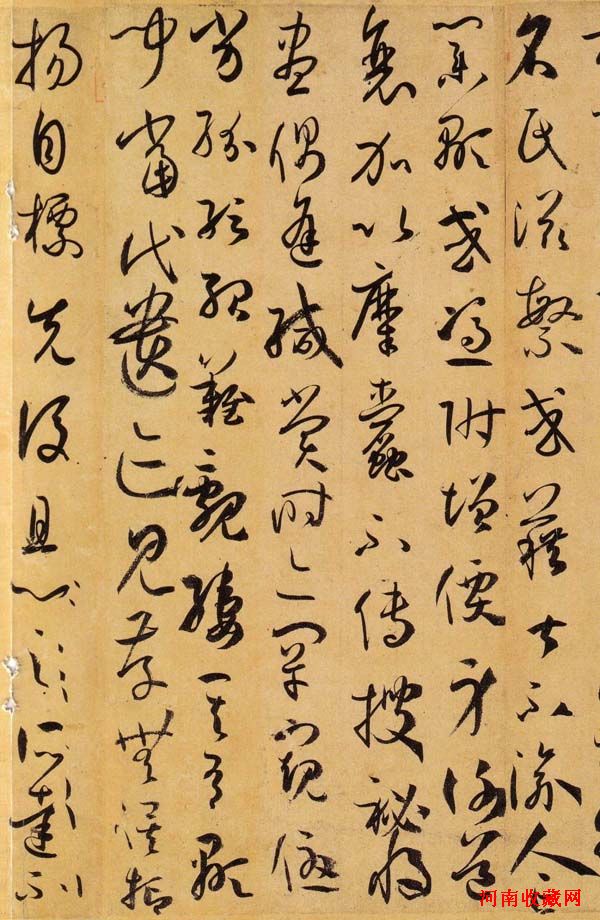 名氏滋繁或藉甚不渝人亡
業顯或憑附增價身謝道
衰加以糜蠹不傳搜秘將
盡偶逢緘賞時亦罕窺優
劣紛紜殆難覼縷其有顯
聞當代遺跡見存無俟抑
揚自標先後且六文之作肇
河南收藏网